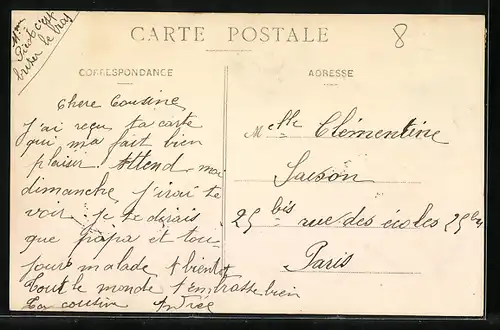 CARTE POSTALE
8
CORRESPONDANCE
ADRESSE
Chere Cousine
J'ai reçu ta carte
qui ma fait bien
plaisir. Attend moi
dimanche j'irai te
voir. je te dirais
que papa et tou
jours malade A bientot
Tout le monde t'embrasse bien
Ta cousine Andrée
Melle Clémentine
Saison
25 bis rue des écoles 25 bis
Paris